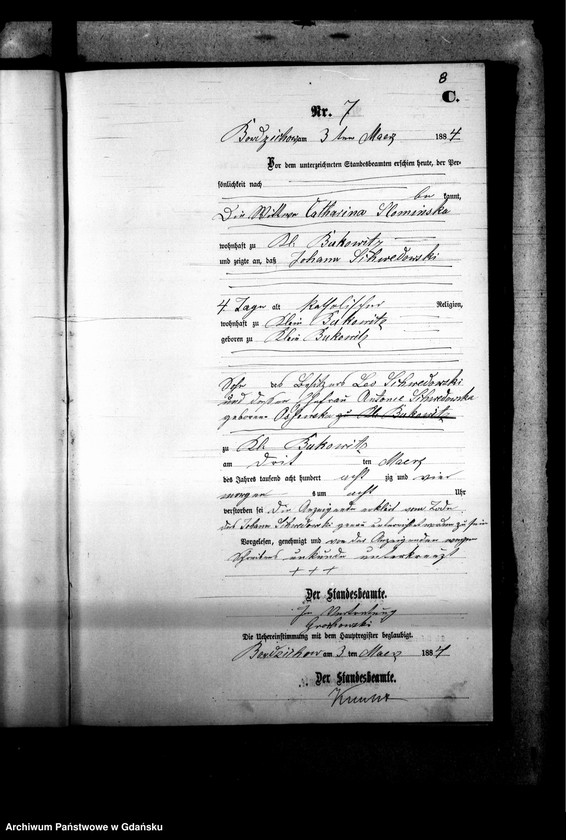 8
C.
Nr. 7
Bordzichow am 3 ten Maerz 1884
Vor dem unterzeichneten Standesbeamten erschien heute, der Per-
sönlichkeit nach
be kannt,
Die Wittwe Catharina Slominska
wohnhaft zu Kl. Bukowitz
und zeigte an, daß Johann Schwedowski
4 Tage alt katholischer Religion,
wohnhaft zu Klein Bukowitz
geboren zu Klein Bukowitz
Sohn des Besitzers Leo Schwedowski
und dessen Ehefrau Antonie Schwedowska
geborene zu Kl. Bukowitz
zu Kl. Bukowitz
am drit ten Maerz
des Jahres tausend acht hundert acht zig und vier
morgen um acht Uhr
verstorben sei Die Anzeigende erklärt vom Tode
des Johann Schwedowski genau unterrichtet worden zu sein
Vorgelesen, genehmigt und von der Anzeigenden wegen
Schreibens unkunde unterkreuzt
+ + +
Der Standesbeamte.
In Vertretung
Grochowski
Die Uebereinstimmung mit dem Hauptregister beglaubigt.
Bordzichow am 3 ten Maerz 1884
Der Standesbeamte.
Archiwum Państwowe w Gdańsku